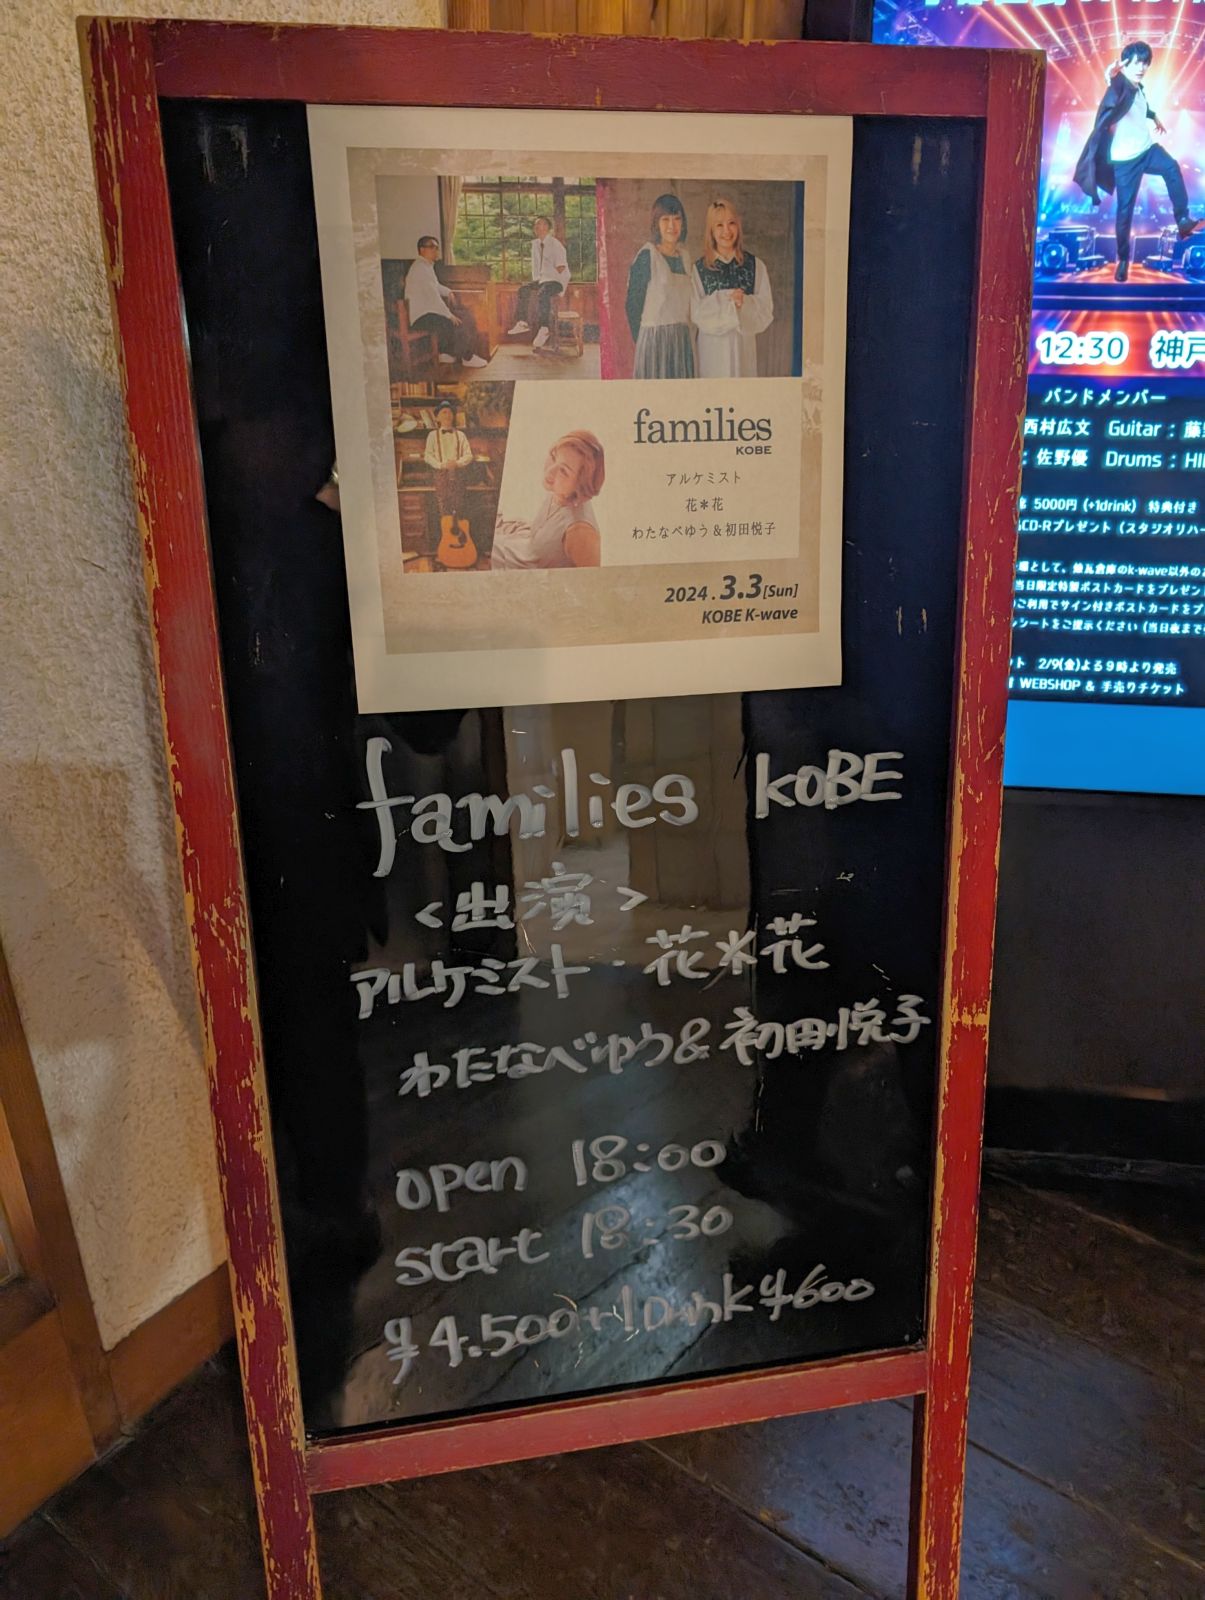 families
KOBE
アルケミスト
花＊花
わたなべゆう＆初田悦子
2024.3.3[Sun]
KOBE K-wave
families KOBE
<出演>
アルケミスト・花＊花
わたなべゆう&初田悦子
open 18:00
start 18:30
¥4.500+1Drink¥600
12:30 神戸
バンドメンバー
西村広文 Guitar : 藤
: 佐野優 Drums : HI
5000円 (+1drink) 特典付き
CD-Rプレゼント (スタジオリハー
として、煉瓦倉庫のk-wave以外のお
当日限定特製ポストカードをプレゼン
ご利用でサイン付きポストカードをプ
シートをご提示ください (当日夜まで
ット 2/9(金)よる9時より発売
WEBSHOP & 手売りチケット